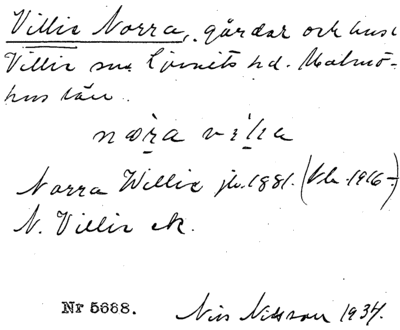 Villie Norra, gårdar och hus i
Villie sn, Ljunits hd. Malmö-
hus län.
nωra vilia
Norra Willie jb. 1881. (Vb. 1916-)
N. Villie ek.
Nr 5668. Nils Nilsson 1934.